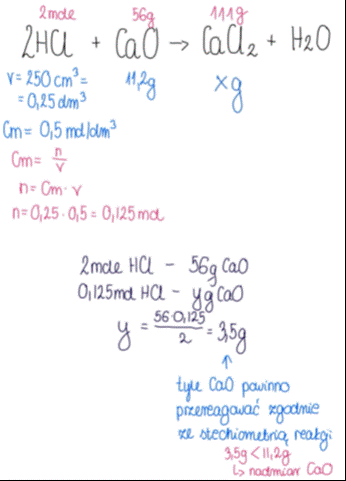 2mole 56g 111g
2HCl + CaO → CaCl₂ + H₂O
v = 250 cm³ = 11,2g xg
= 0,25 dm³
Cm = 0,5 mol/dm³
Cm = n/v
n = Cm · v
n = 0,25 · 0,5 = 0,125 mol
2mole HCl - 56g CaO
0,125mol HCl - yg CaO
y = 56·0,125/2 = 3,5g
↑
tyle CaO powinno
przereagować zgodnie
ze stechiometrią reakcji
3,5g < 11,2g
↳ nadmiar CaO